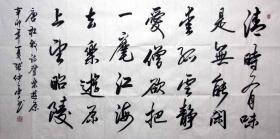 清時有味
是無能閑
愛孤雲靜
愛僧欲把
一麾江海
去樂遊原
上望昭陵
唐杜牧詩登樂遊原
辛卯年夏